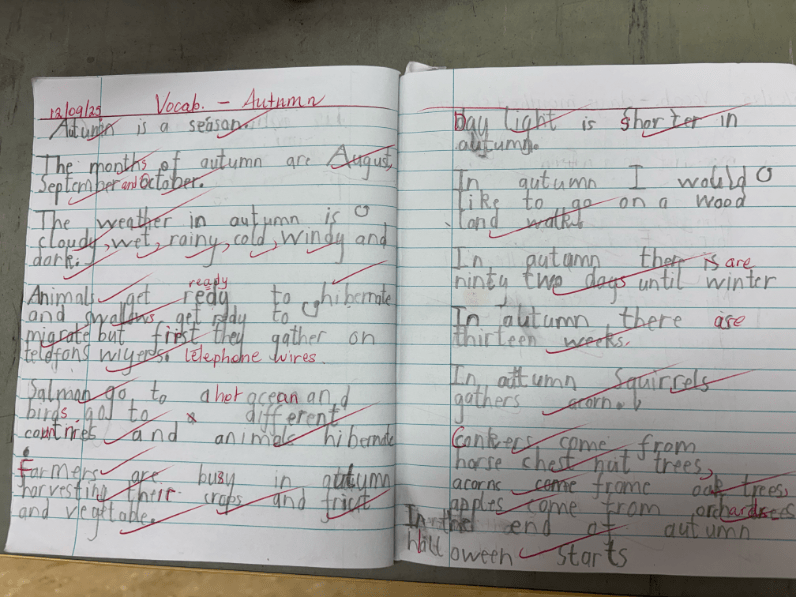 12/09/25 Vocab. - Autumn
Autumn is a season.
The months of autumn are August,
September and October.
The weather in autumn is
cloudy, wet, rainy, cold, windy and
dark.
ready
Animals get redy to hibernate
and swallows get redy to
migrate but first they gather on
telefons wiyers. telephone wires.
Salmon go to a hot ocean and
birds go to different
countries and animals hibernate
Farmers are busy in autumn
harvesting their crops and fruit
and vegetable.
Day light is shorter in
autumn.
In autumn I would
like to go on a wood
land walk.
In autumn there is are
nintu two days until winter
In autumn there are
thirteen weeks.
In autumn Squirrels
gathers acorn.
Conkers come from
horse chest nut trees,
acorns come frome oak trees,
apples come from orchardtrees
In the end of autumn
Halloween starts